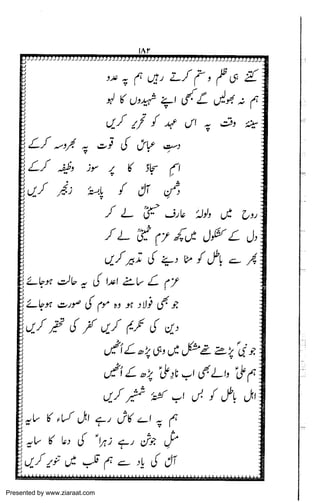 ۱۸۲
کتنے ہی ظلم و ستم کرتے رہیں ہم پہ عدو
ہم نہ بھولیں گے کبھی اپنے شہیدوں کا لہو
سینۂ وقت پہ اس عہد کو تحریر کریں
دست عباسؑ کی قوت پہ بھروسہ کر کے
اسم سجادؑ کا پر سوز وظیفہ کر کے
دشمن آلؑ کو پابستۂ زنجیر کریں
روح میں ولولۂ عارف حسینیؒ لے کر
دل کے کشکول میں کچھ عزم خمینیؒ لے کر
پھر سے باطل کو مٹا دینے کی تدبیر کریں
عزم کے سامنے اعدا کی یہ حالت ہو جائے
جو بھی فولاد ہو وہ موم کی صورت ہو جائے
دین کی تکریم کریں کفر کی تحقیر کریں
جو نبیؐ پڑھتے تھے مشکل میں وہی پڑھ کے اٹھیں
ہم علیؑ والے بھی اب ناد علیؑ پڑھ کے اٹھیں
اہل باطل کو بس اب کشتۂ شمشیر کریں
ہم پہ اے کاش رہے اہل کساء کا سایہ
مثل جوشن رہے زہراؑ کی ردا کا سایہ
آلؑ کی یاد سے ہم قلب میں تنویر کریں
Presented by www.ziaraat.com